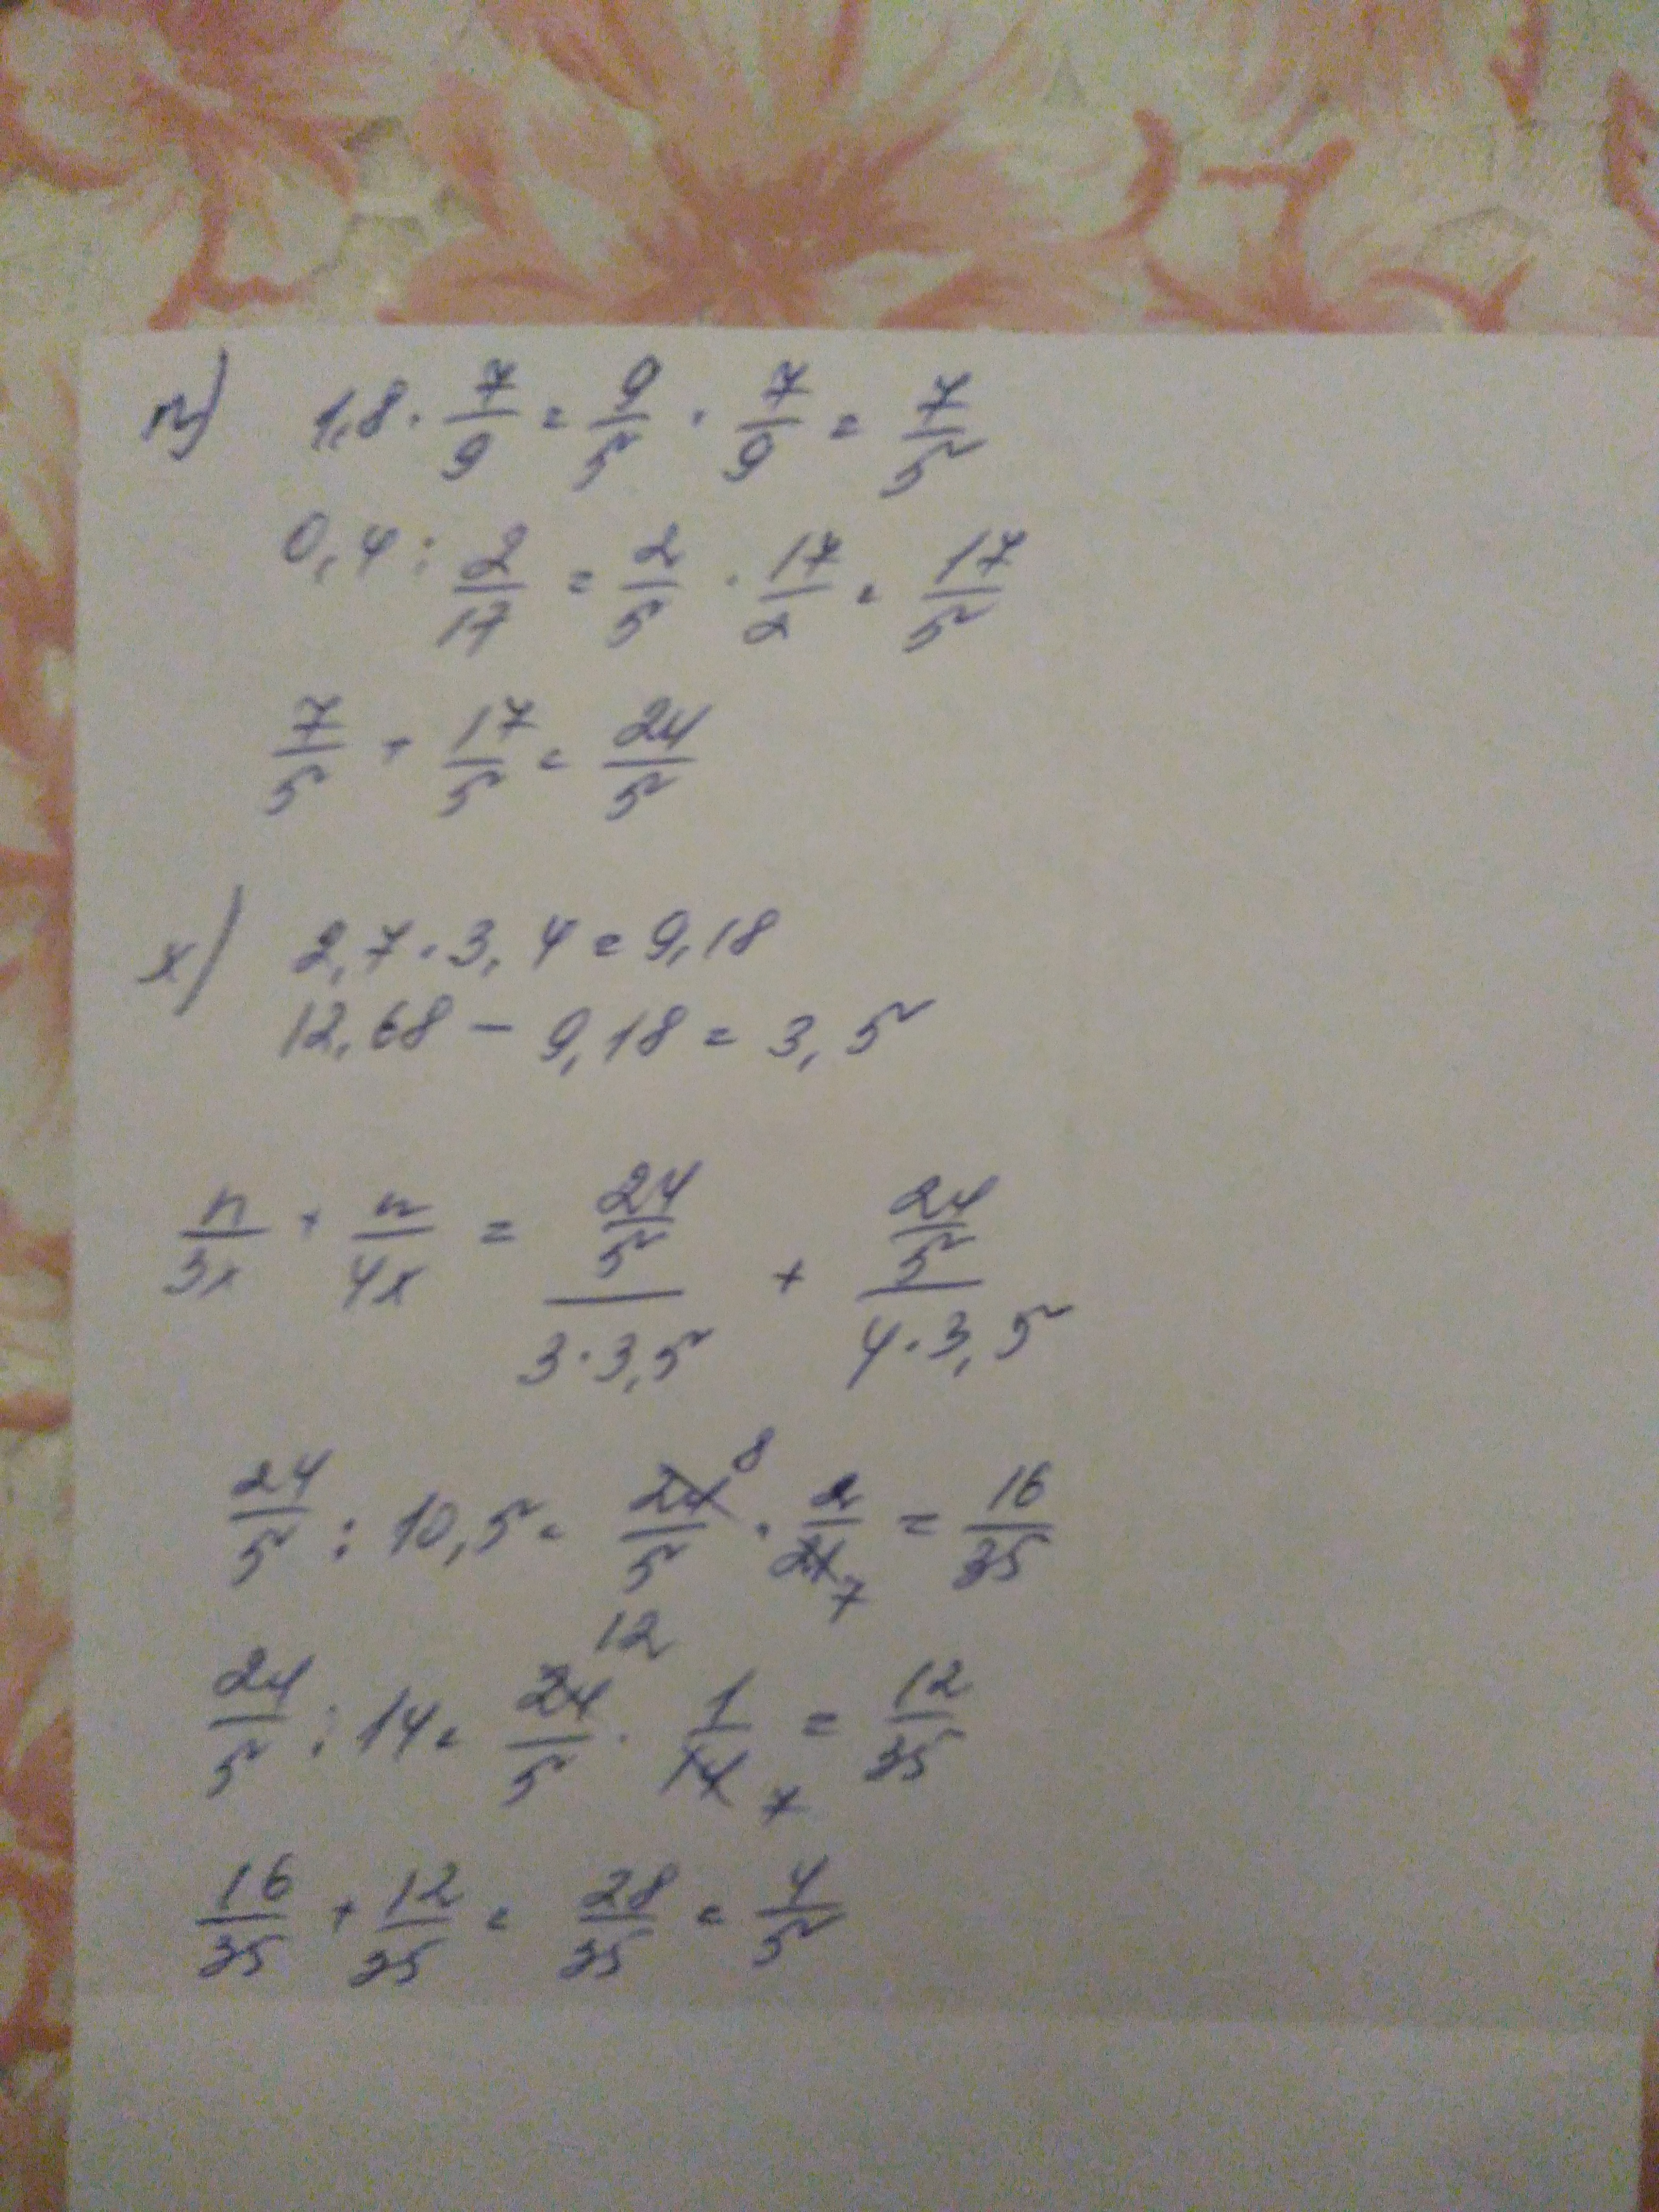 n) 1,8 · 7/9 = 9/5 · 7/9 = 7/5
0,4 : 2/17 = 2/5 · 17/2 = 17/5
7/5 + 17/5 = 24/5
x) 2,7 · 3,4 = 9,18
12,68 − 9,18 = 3,5
n/3x + n/4x = (24/5)/(3·3,5) + (24/5)/(4·3,5)
24/5 : 10,5 = 24/5 8 · 2/21 7 = 16/35
24/5 : 14 = 24/5 12 · 1/14 7 = 12/35
16/35 + 12/35 = 28/35 = 4/5